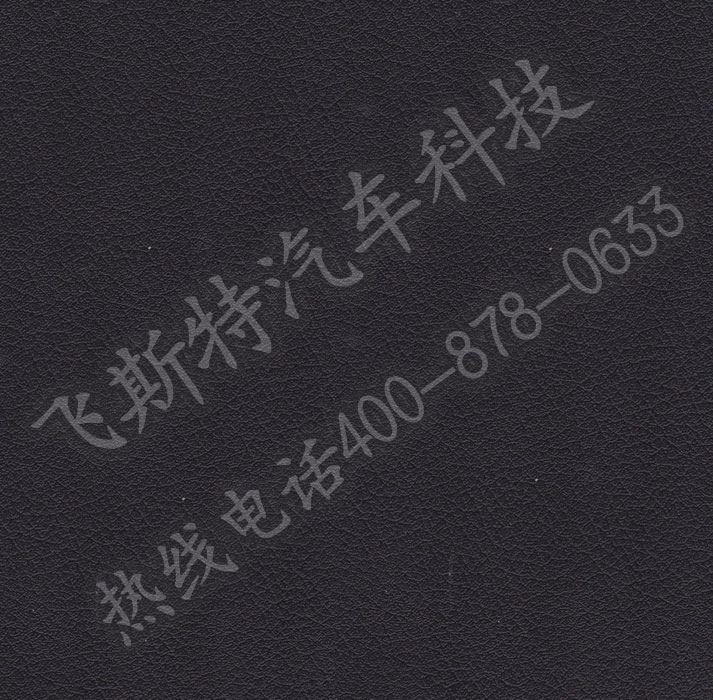 飞斯特汽车科技
热线电话400-878-0633